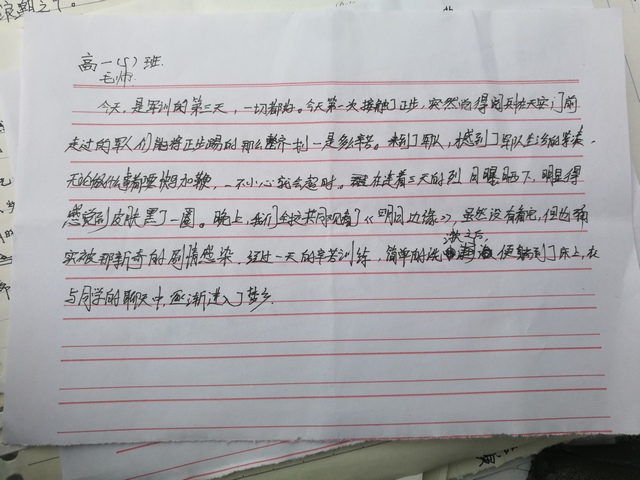 良朝之广。
高一(5)班
毛帅
今天,是军训的第三天,一切都好。今天第一次接触了正步,突然觉得阅兵在天安门前
走过的军人们能将正步踢的那么整齐划一是多么辛苦。来到军队,感到了军队生活的苦涩,
无论做什么事都要快马加鞭,一不小心就会超时。在连着三天的烈日曝晒下,明显得
感觉到皮肤黑了一圈。晚上,我们全校共同观看了《明日边缘》,虽然没有看完,但也确
实被那新奇的剧情感染。经过一天的辛苦训练,简单的洗漱之后,便躺到了床上,在
与同学的聊天中,逐渐进入了梦乡.